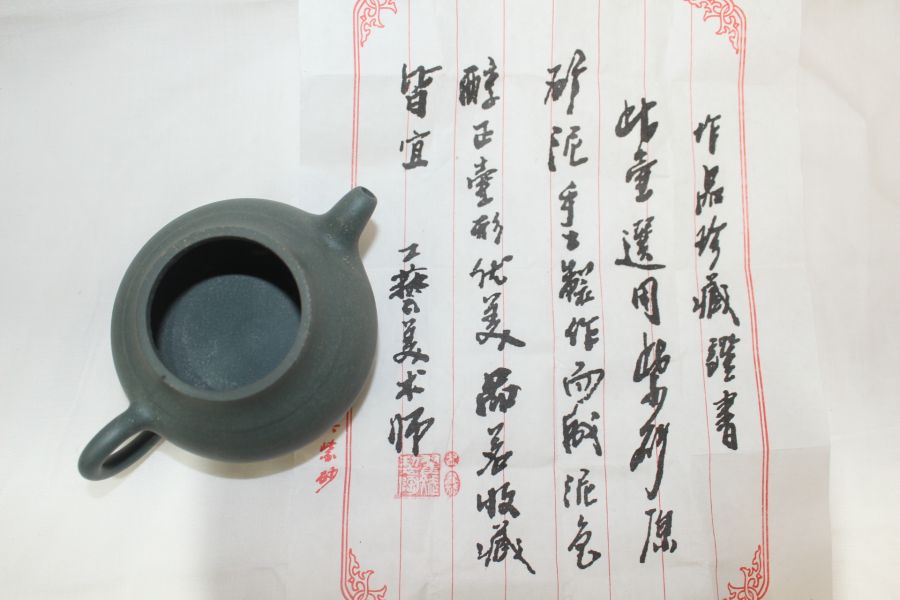 作品珍藏證書
此壷選用紫砂原
矿泥手工製作而成泥色
醇正壷形优美品茗收藏
皆宜 工藝美术师
紫砂